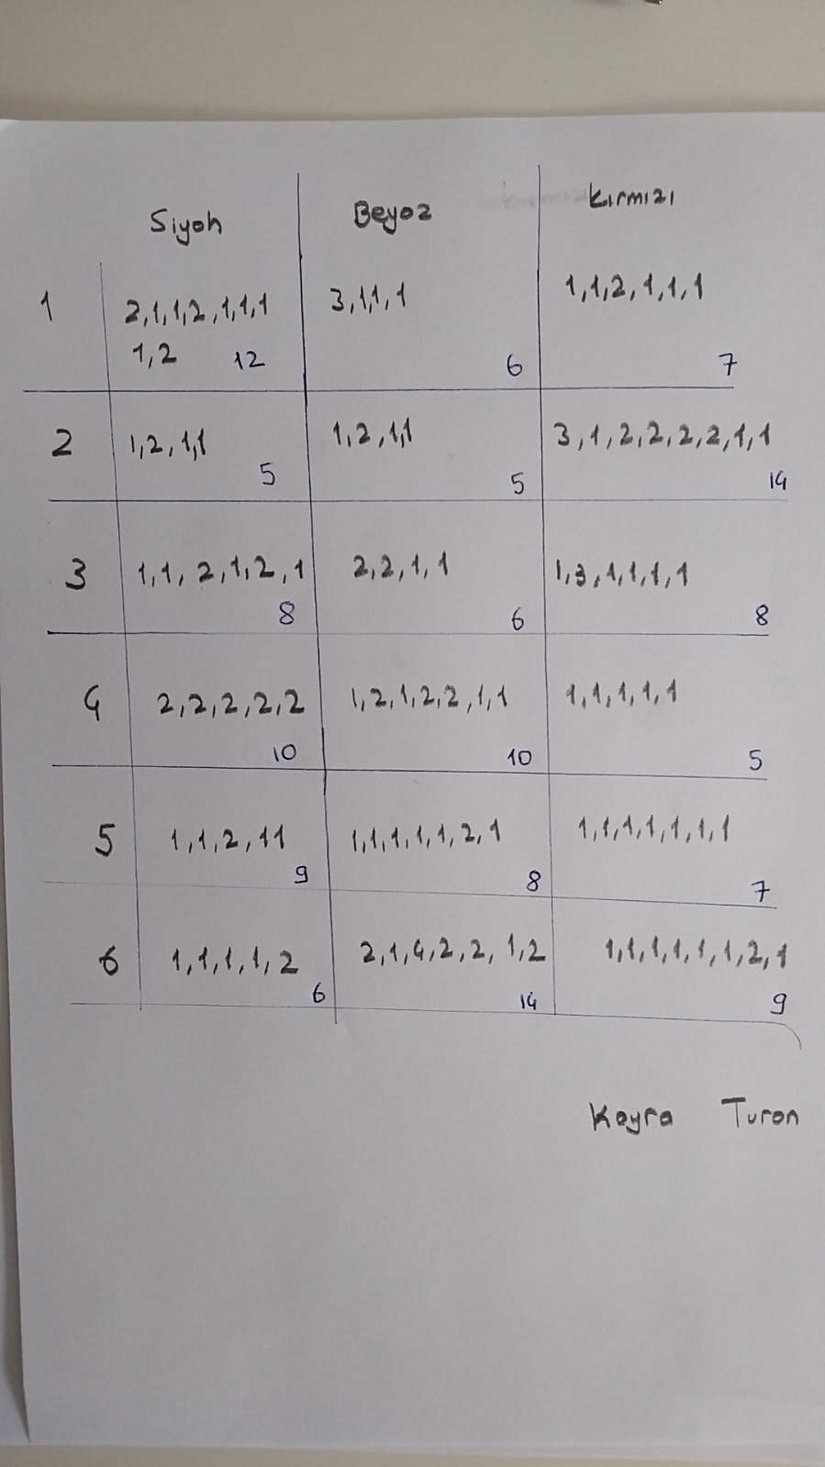 Siyah Beyaz Kırmızı
1 2,1,1,2,1,1,1 3,1,1,1 1,1,2,1,1,1
1,2 12 6 7
2 1,2,1,1 1,2,1,1 3,1,2,2,2,2,1,1
5 5 14
3 1,1,2,1,2,1 2,2,1,1 1,3,1,1,1,1
8 6 8
4 2,2,2,2,2 1,2,1,2,2,1,1 1,1,1,1,1
10 10 5
5 1,1,2,11 1,1,1,1,1,2,1 1,1,1,1,1,1,1
9 8 7
6 1,1,1,1,2 2,1,4,2,2,1,2 1,1,1,1,1,1,2,1
6 14 9
Kayra Turan